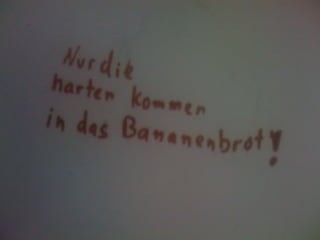 Nur die
harten kommen
in das Bananenbrot!